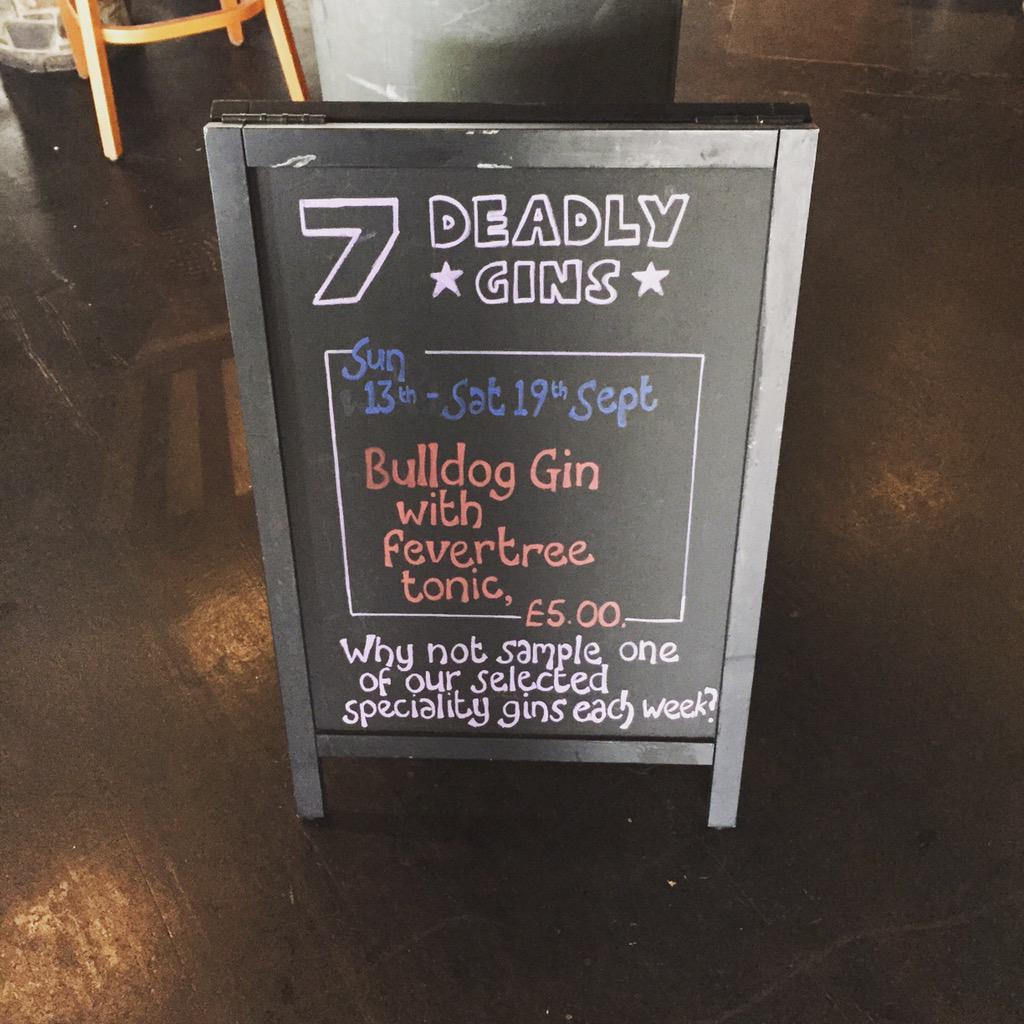 7 DEADLY
★ GINS ★
Sun
13th - Sat 19th Sept
Bulldog Gin
with
fevertree
tonic,
£5.00.
Why not sample one
of our selected
speciality gins each week?